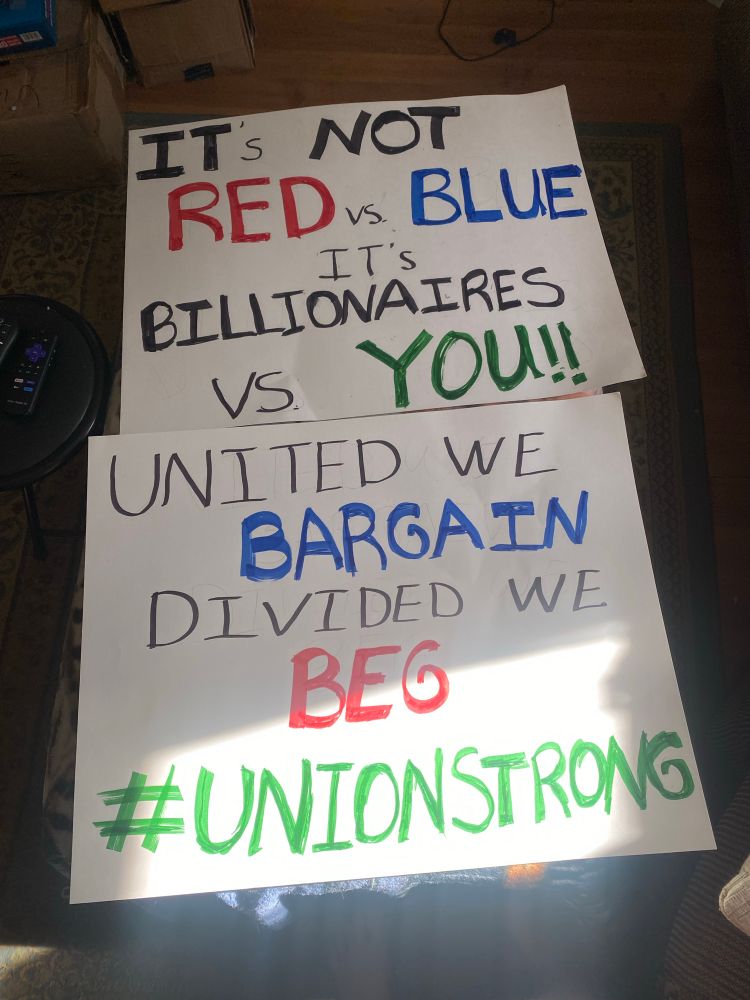 IT's NOT
RED vs. BLUE
IT's
BILLIONAIRES
VS. YOU!!
UNITED WE
BARGAIN
DIVIDED WE
BEG
#UNIONSTRONG